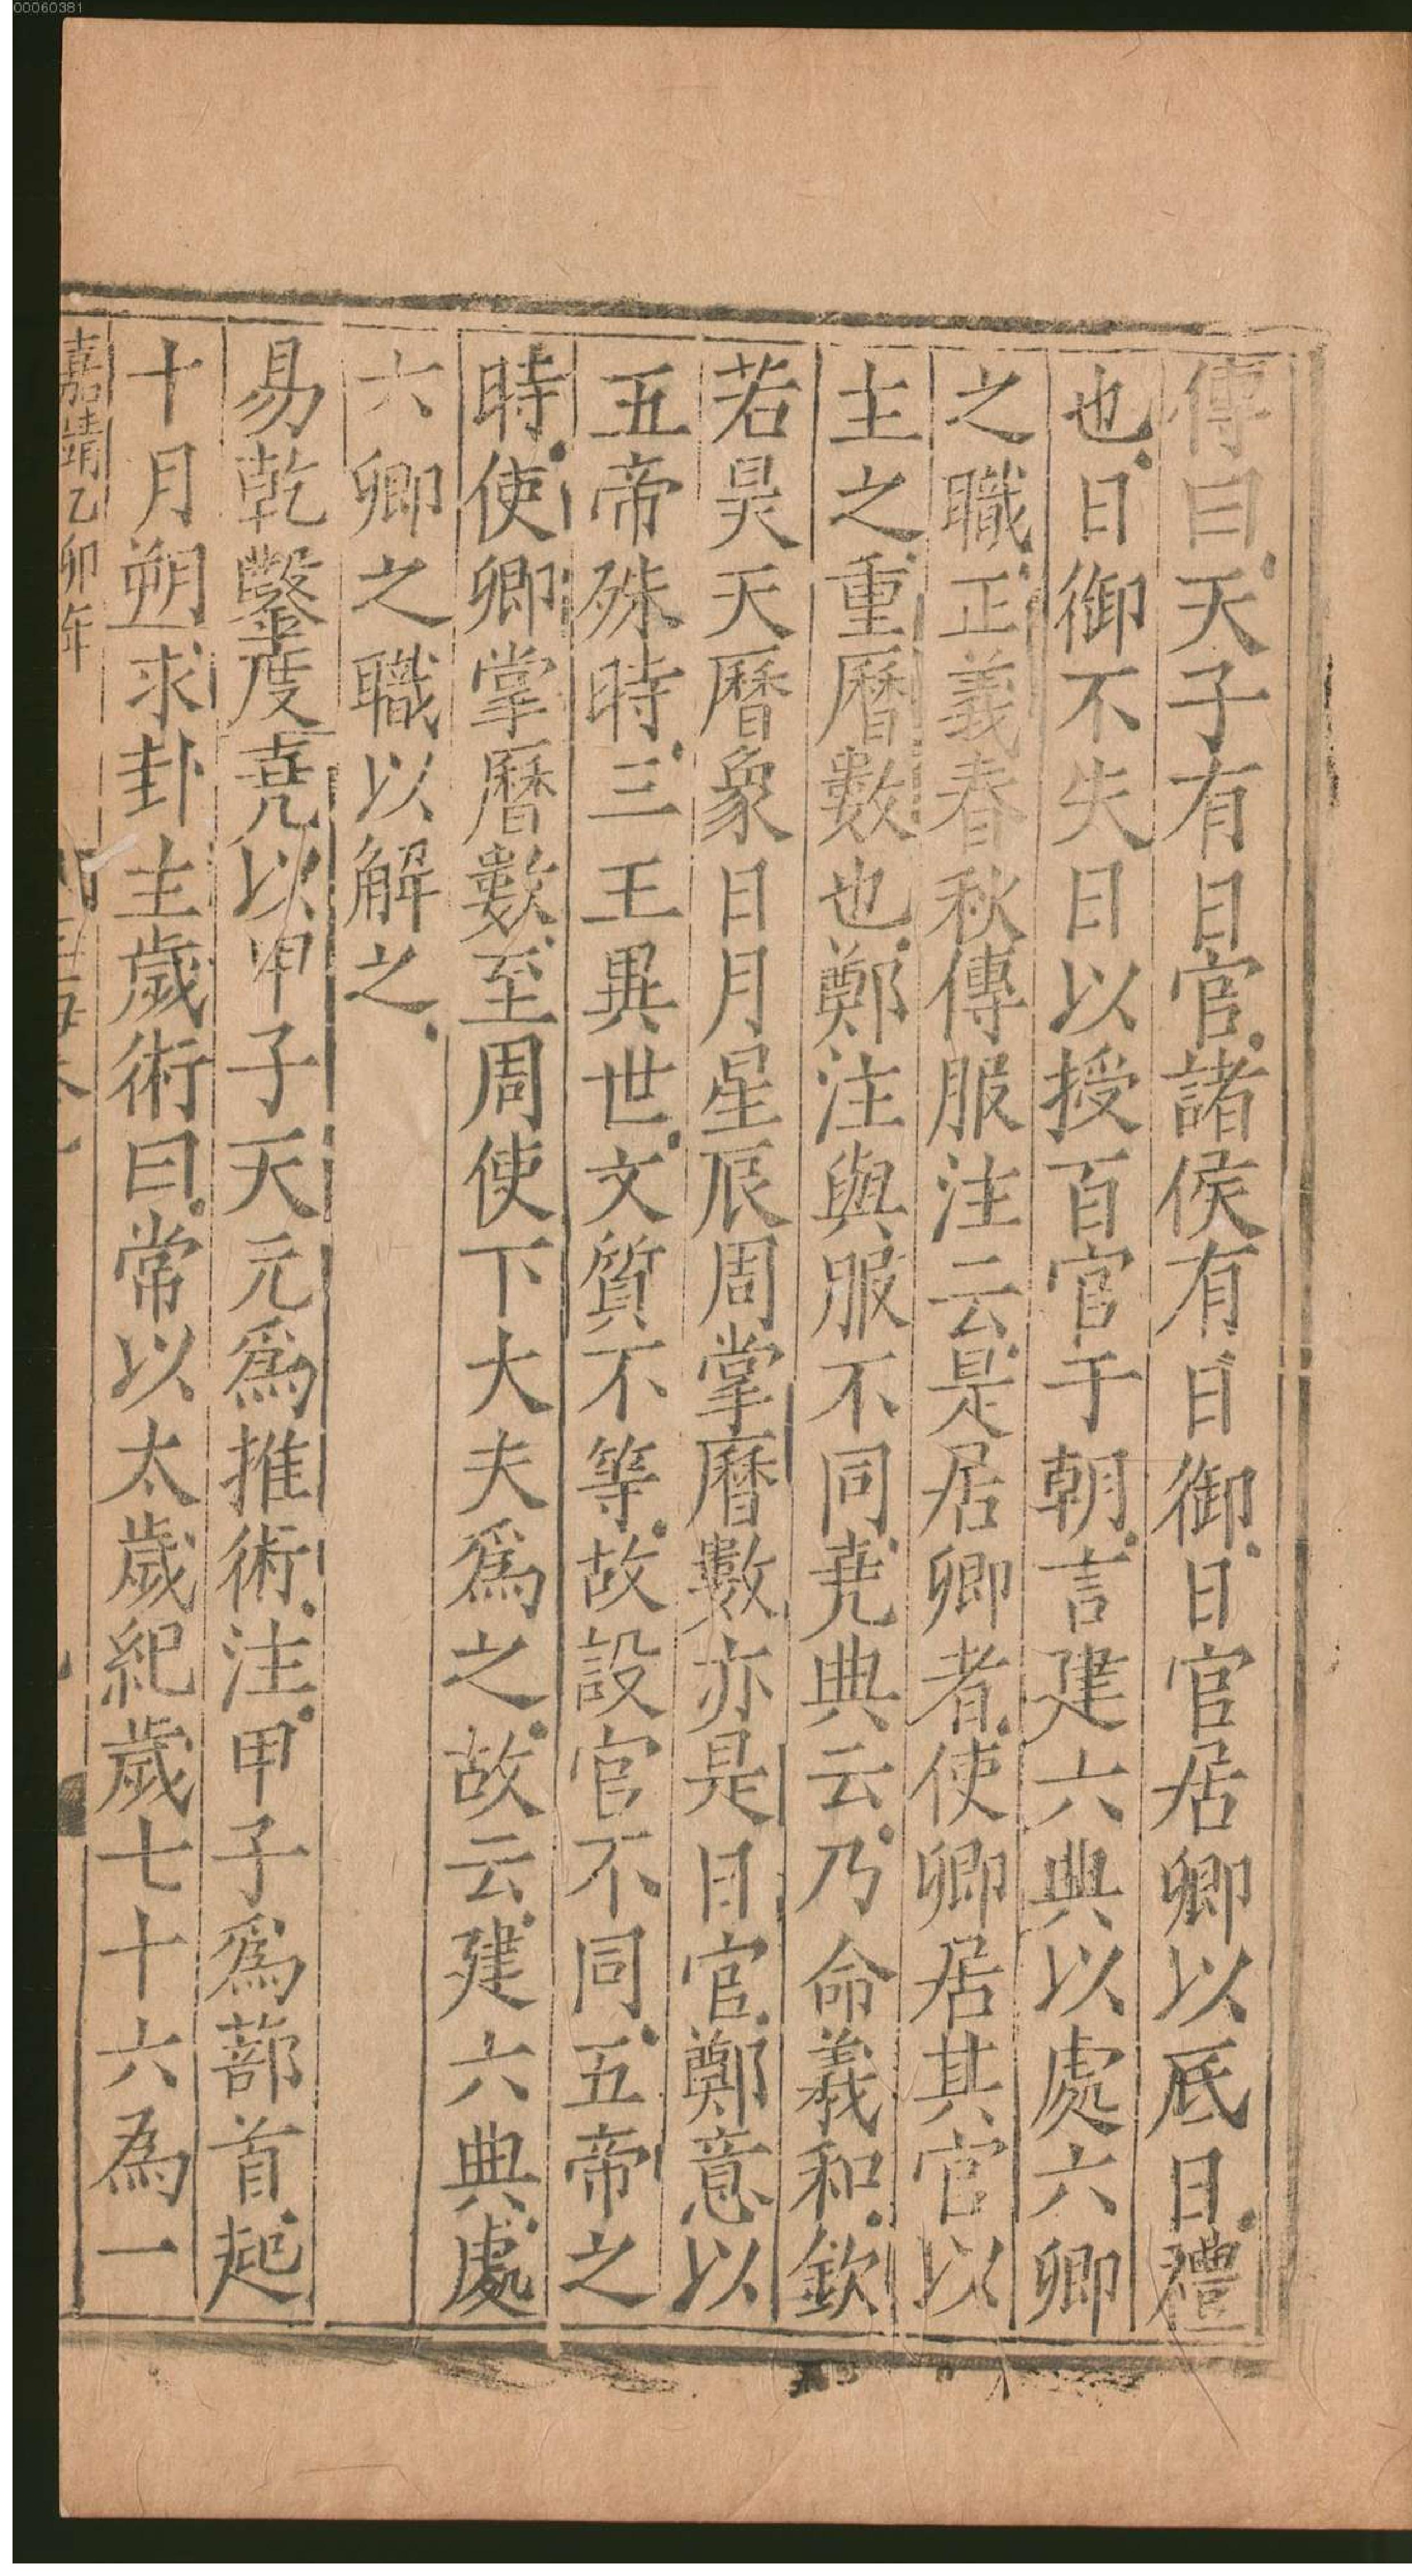 00060381
傳曰天子有日官諸侯有日御日官居卿以厎日禮
也日御不失日以授百官于朝言建六典以處六卿
之職正義春秋傳服注云是居卿者使卿居其官以
主之重曆數也鄭注與服不同堯典云乃命羲和欽
若昊天曆象日月星辰周掌曆數亦是日官鄭意以
五帝殊時三王異世文質不等故設官不同五帝之
時使卿掌曆數至周使下大夫爲之故云建六典處
六卿之職以解之
易乾鑿度堯以甲子天元爲推術注甲子爲蔀首起
十月朔求卦主歲術曰常以太歲紀歲七十六為一
嘉靖乙卯年